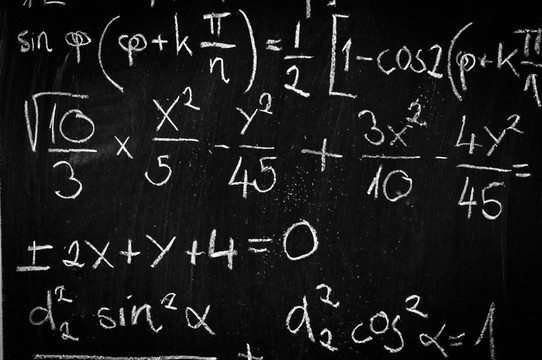 sin φ (φ+k π/n) = 1/2 [1-cos2(φ+k π
√10/3 × x²/5 - y²/45 + 3x²/10 - 4y²/45 =
± 2x+y+4=0
d₂² sin²α d₂² cos²α=1